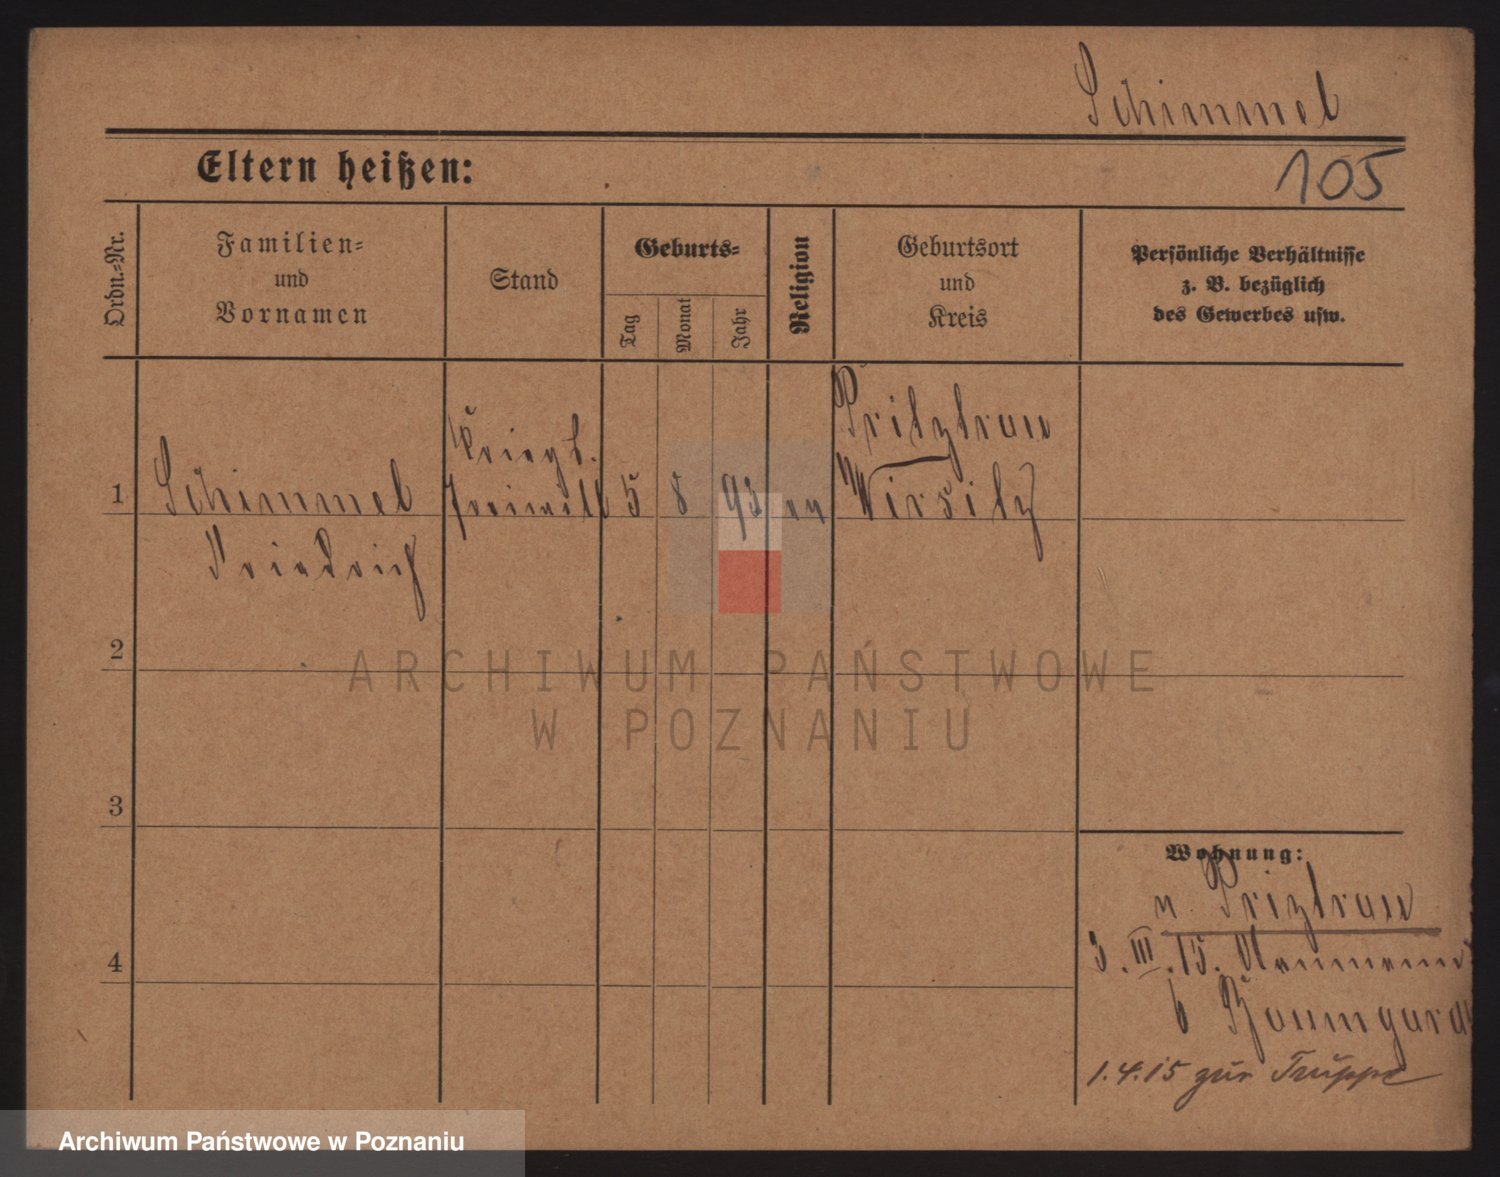 Schimmel
Eltern heißen:
105
Ordn.-Nr.
Familien-
und
Vornamen
Stand
Geburts-
Tag
Monat
Jahr
Religion
Geburtsort
und
Kreis
Persönliche Verhältnisse
z. B. bezüglich
des Gewerbes usw.
1
Schimmel
Friedrich
Kriegs.
freiwill
5
8
93
ev
Pritztrau
Wirsitz
2
3
4
Wohnung:
n. Priztrau
3. III. 15.
b Baumgardt
1.4.15 zur Truppe
ARCHIWUM PAŃSTWOWE
W POZNANIU
Archiwum Państwowe w Poznaniu